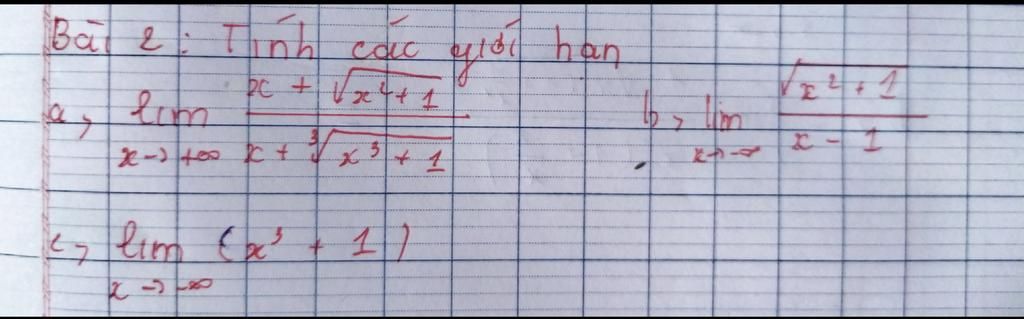 Bài 2: Tính các giới hạn
a, lim x→+∞ (x + √(x² + 1)) / (x + ∛(x³ + 1))
b, lim x→-∞ √(x² + 1) / (x - 1)
c, lim x→-∞ (x³ + 1)